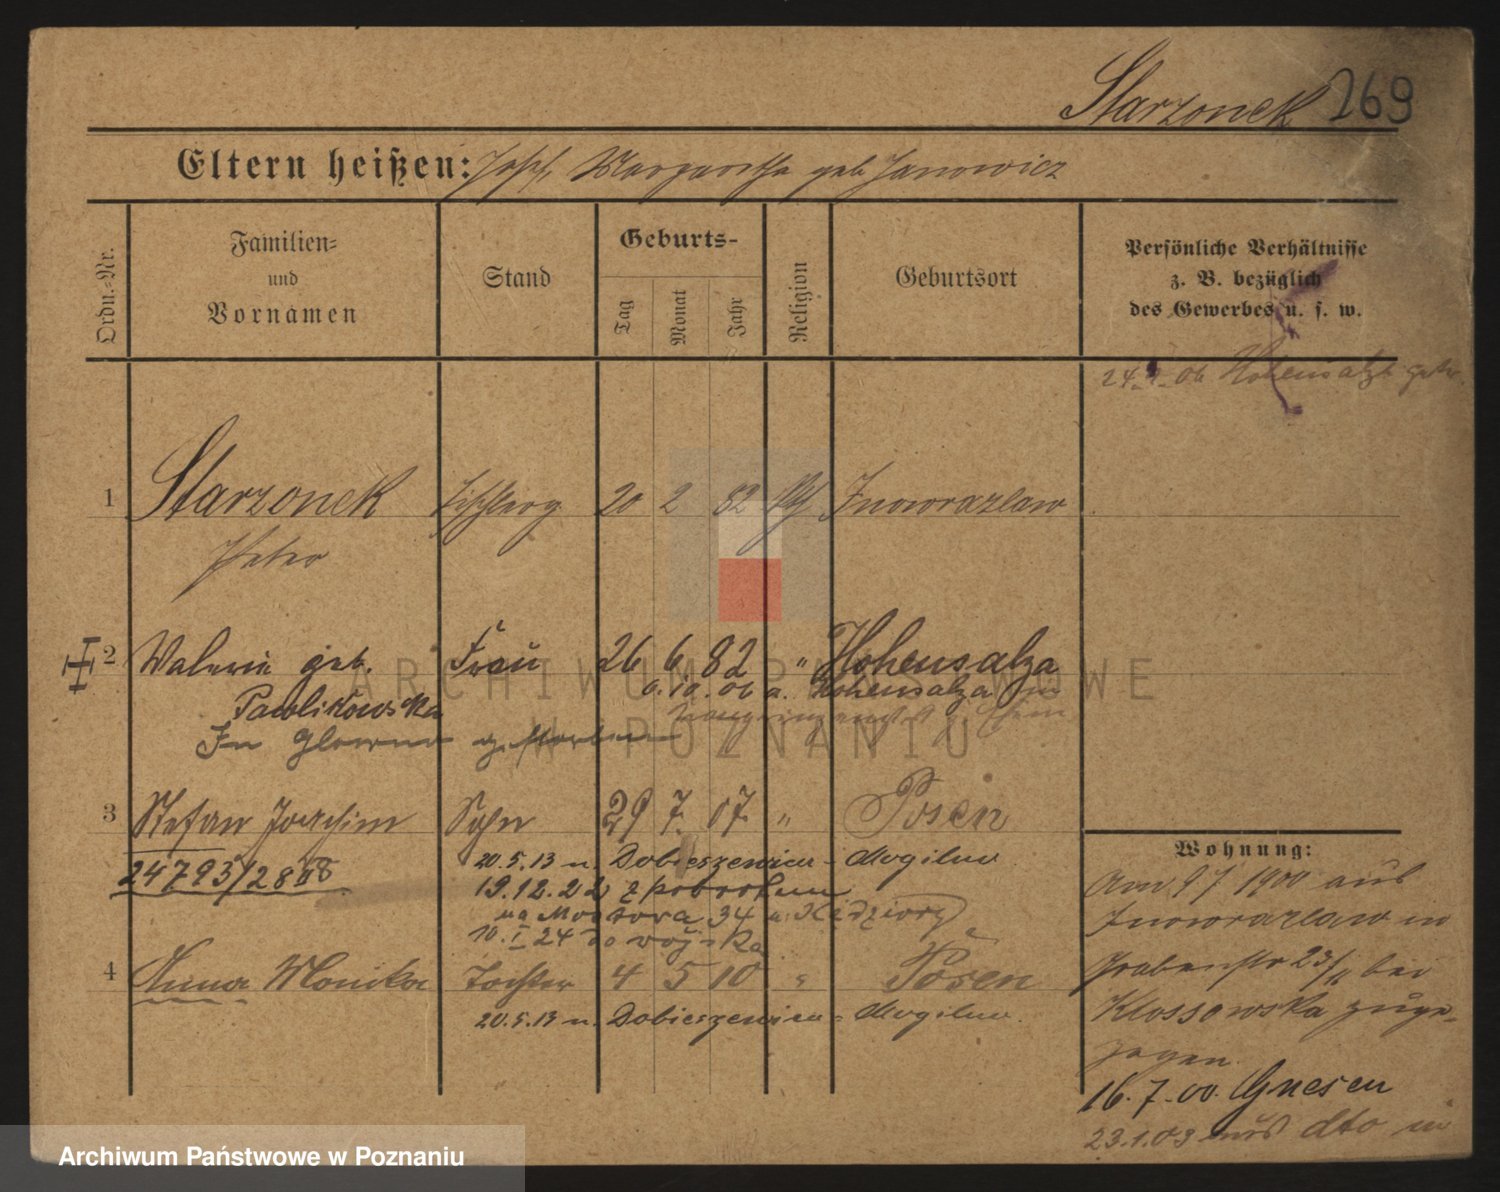 Starzonek 269
Eltern heißen: Josef, Margaretha geb. Janowicz
Ordn.-Nr.
Familien-
und
Vornamen
Stand
Geburts-
Tag
Monat
Jahr
Religion
Geburtsort
Persönliche Verhältnisse
z. B. bezüglich
des Gewerbes u. s. w.
06 Hohensalza
1 Starzonek 20 2 82 Inowrazlaw
Peter
2 Valerie geb. Frau 26 6. 82 " Hohensalza
Pawlikowska 6. 10. 06 a. Hohensalza
In Glowno gestorben
3 Stefan Joachim Sohn 29 7. 07 " Posen
24793/28 20.5.13 n. Dobieszewice - Mogilno
19.12.22 z poborem
na 34
10. I 24 do wojska
4 Anna Monika Tochter 4 5 10 " Posen
20.5.13 n. Dobieszewice - Mogilno.
Wohnung:
Am 9/7 1900 aus
Inowrazlaw in
Grabenstr 23/ bei
Klossowska zuge-
zogen.
16.7.00. Gnesen
23.1.03 aus dto in
ARCHIWUM PAŃSTWOWE
W POZNANIU
Archiwum Państwowe w Poznaniu